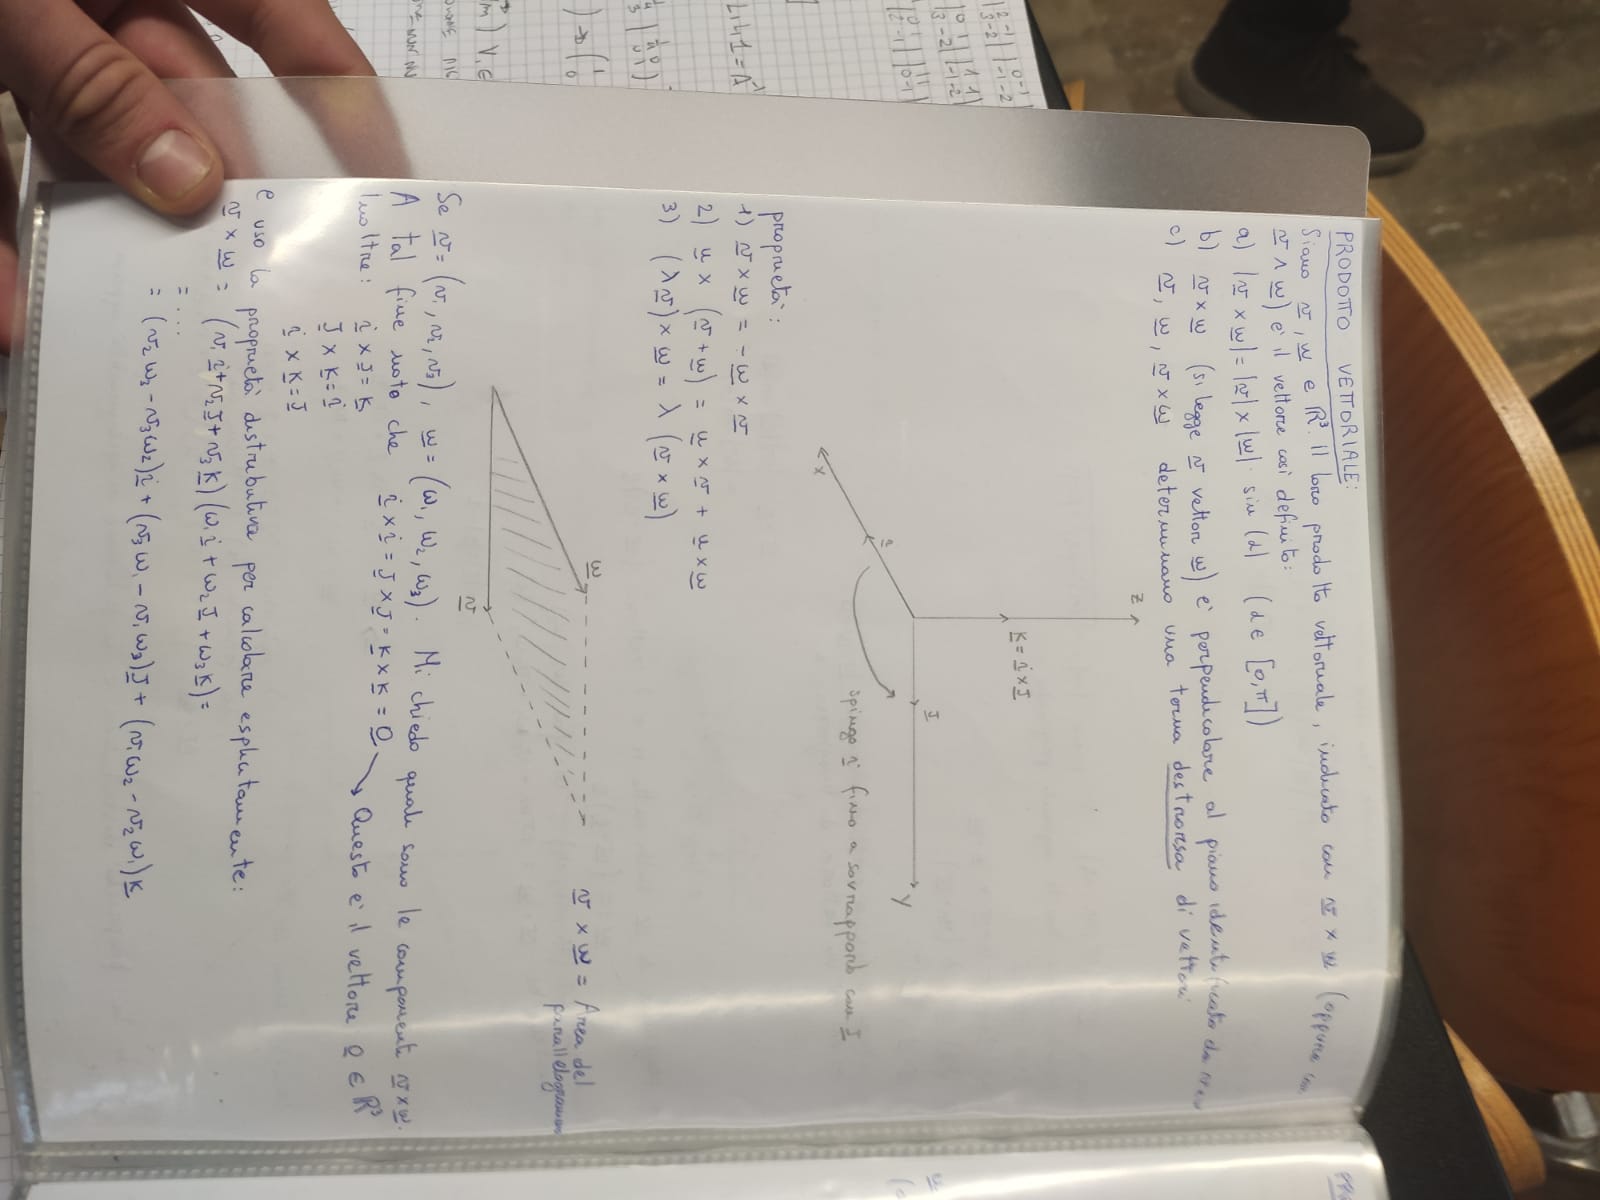 PRODOTTO VETTORIALE:
Siano v, w e ℝ³. Il loro prodotto vettoriale, indicato con v × w (oppure con
v ∧ w) e' il vettore così definito:
a) |v × w| = |v| × |w| · sin (α) (α ∈ [0,π])
b) v × w (si legge v vettor w) e' perpendicolare al piano identificato da v e w
c) v, w, v × w determinano una terna destrorsa di vettori
z
k = i × J
J
y
i
x
spingo i fino a sovrapporlo con J
proprietà:
1) v × w = - w × v
2) u × (v + w) = u × v + u × w
3) (λ v) × w = λ (v × w)
w
v
v × w = Area del
parallelogramma
Se v = (v₁, v₂, v₃), w = (w₁, w₂, w₃). Mi chiedo quali sono le componenti v × w.
A tal fine noto che i × i = J × J = k × k = 0 → Questo e' il vettore 0 ∈ ℝ³
Inoltre: i × J = k
J × k = i
i × k = J
e uso la proprietà distributiva per calcolare esplicitamente:
v × w = (v₁ i + v₂ J + v₃ k) (w₁ i + w₂ J + w₃ k) =
= ....
= (v₂ w₃ - v₃ w₂) i + (v₃ w₁ - v₁ w₃) J + (v₁ w₂ - v₂ w₁) k